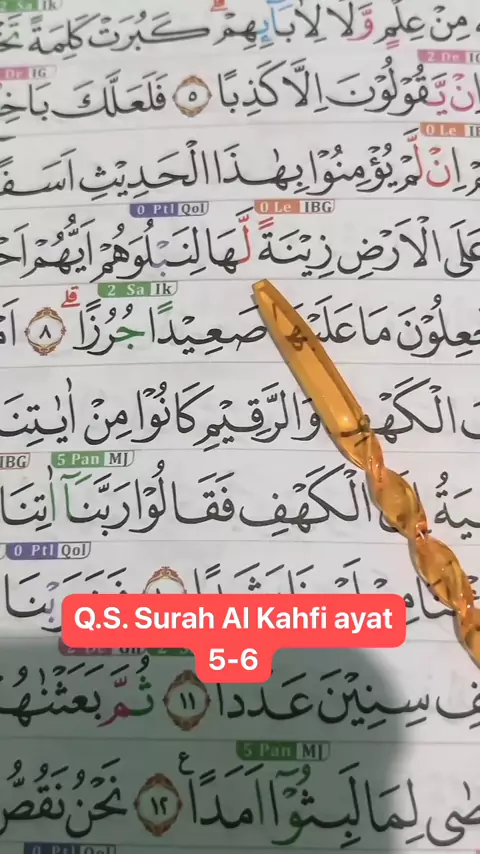 2 Sa Ik
مِنْ عِلْمٍ وَّلَا لِاٰبَاۤىِٕهِمْۗ كَبُرَتْ كَلِمَةً
2 De IG
Dr IG
يَّقُوْلُوْنَ اِلَّا كَذِبًا ٥ فَلَعَلَّكَ
0 Le
اِنْ لَّمْ يُؤْمِنُوْا بِهٰذَا الْحَدِيْثِ اَسَفًا
0 Ptl Qol 0 Le IBG
عَلَى الْاَرْضِ زِيْنَةً لَّهَا لِنَبْلُوَهُمْ اَيُّهُمْ
2 Sa Ik
مَا عَلَيْهَا صَعِيْدًا جُرُزًاۗ ٨
الْكَهْفِ وَالرَّقِيْمِ كَانُوْا مِنْ اٰيٰتِنَا
IBG 5 Pan MJ
الْكَهْفِ فَقَالُوْا رَبَّنَآ اٰتِنَا
0 Ptl Qol
Q.S. Surah Al Kahfi ayat
5-6
سِنِيْنَ عَدَدًا ١١ ثُمَّ بَعَثْنٰهُمْ
5 Pan MJ
لِمَا لَبِثُوْٓا اَمَدًا ࣖ ١٢ نَحْنُ نَقُصُّ
0 Ptl Qol